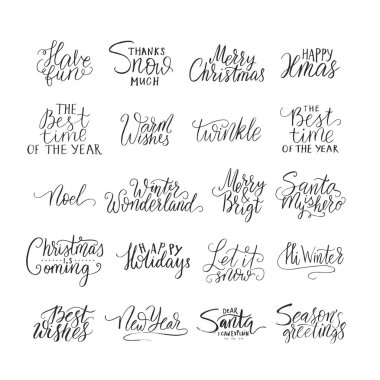 Have
fun
THANKS
Snow
MUCH
Merry
Christmas
HAPPY
Xmas
THE
Best
time
OF THE YEAR
Warm
Wishes
twinkle
THE
Best
time
OF THE YEAR
Noel
Winter
Wonderland
Merry
&
Brigt
Santa
My is hero
Christmas
IS
Coming
HAPPY
Holidays
Let it
snow
Hi Winter
Best
wishes
New Year
DEAR
Santa
I CAN EXPLAIN
Season's
greetings